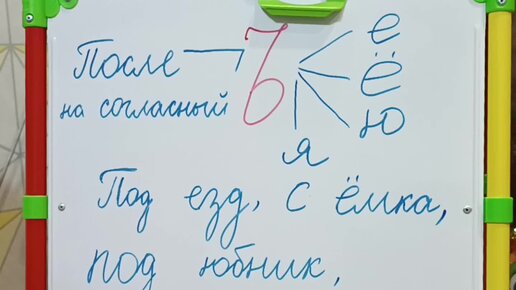 е
После Ъ ё
на согласный ю
я
Под езд, с ёмка,
под юбник,